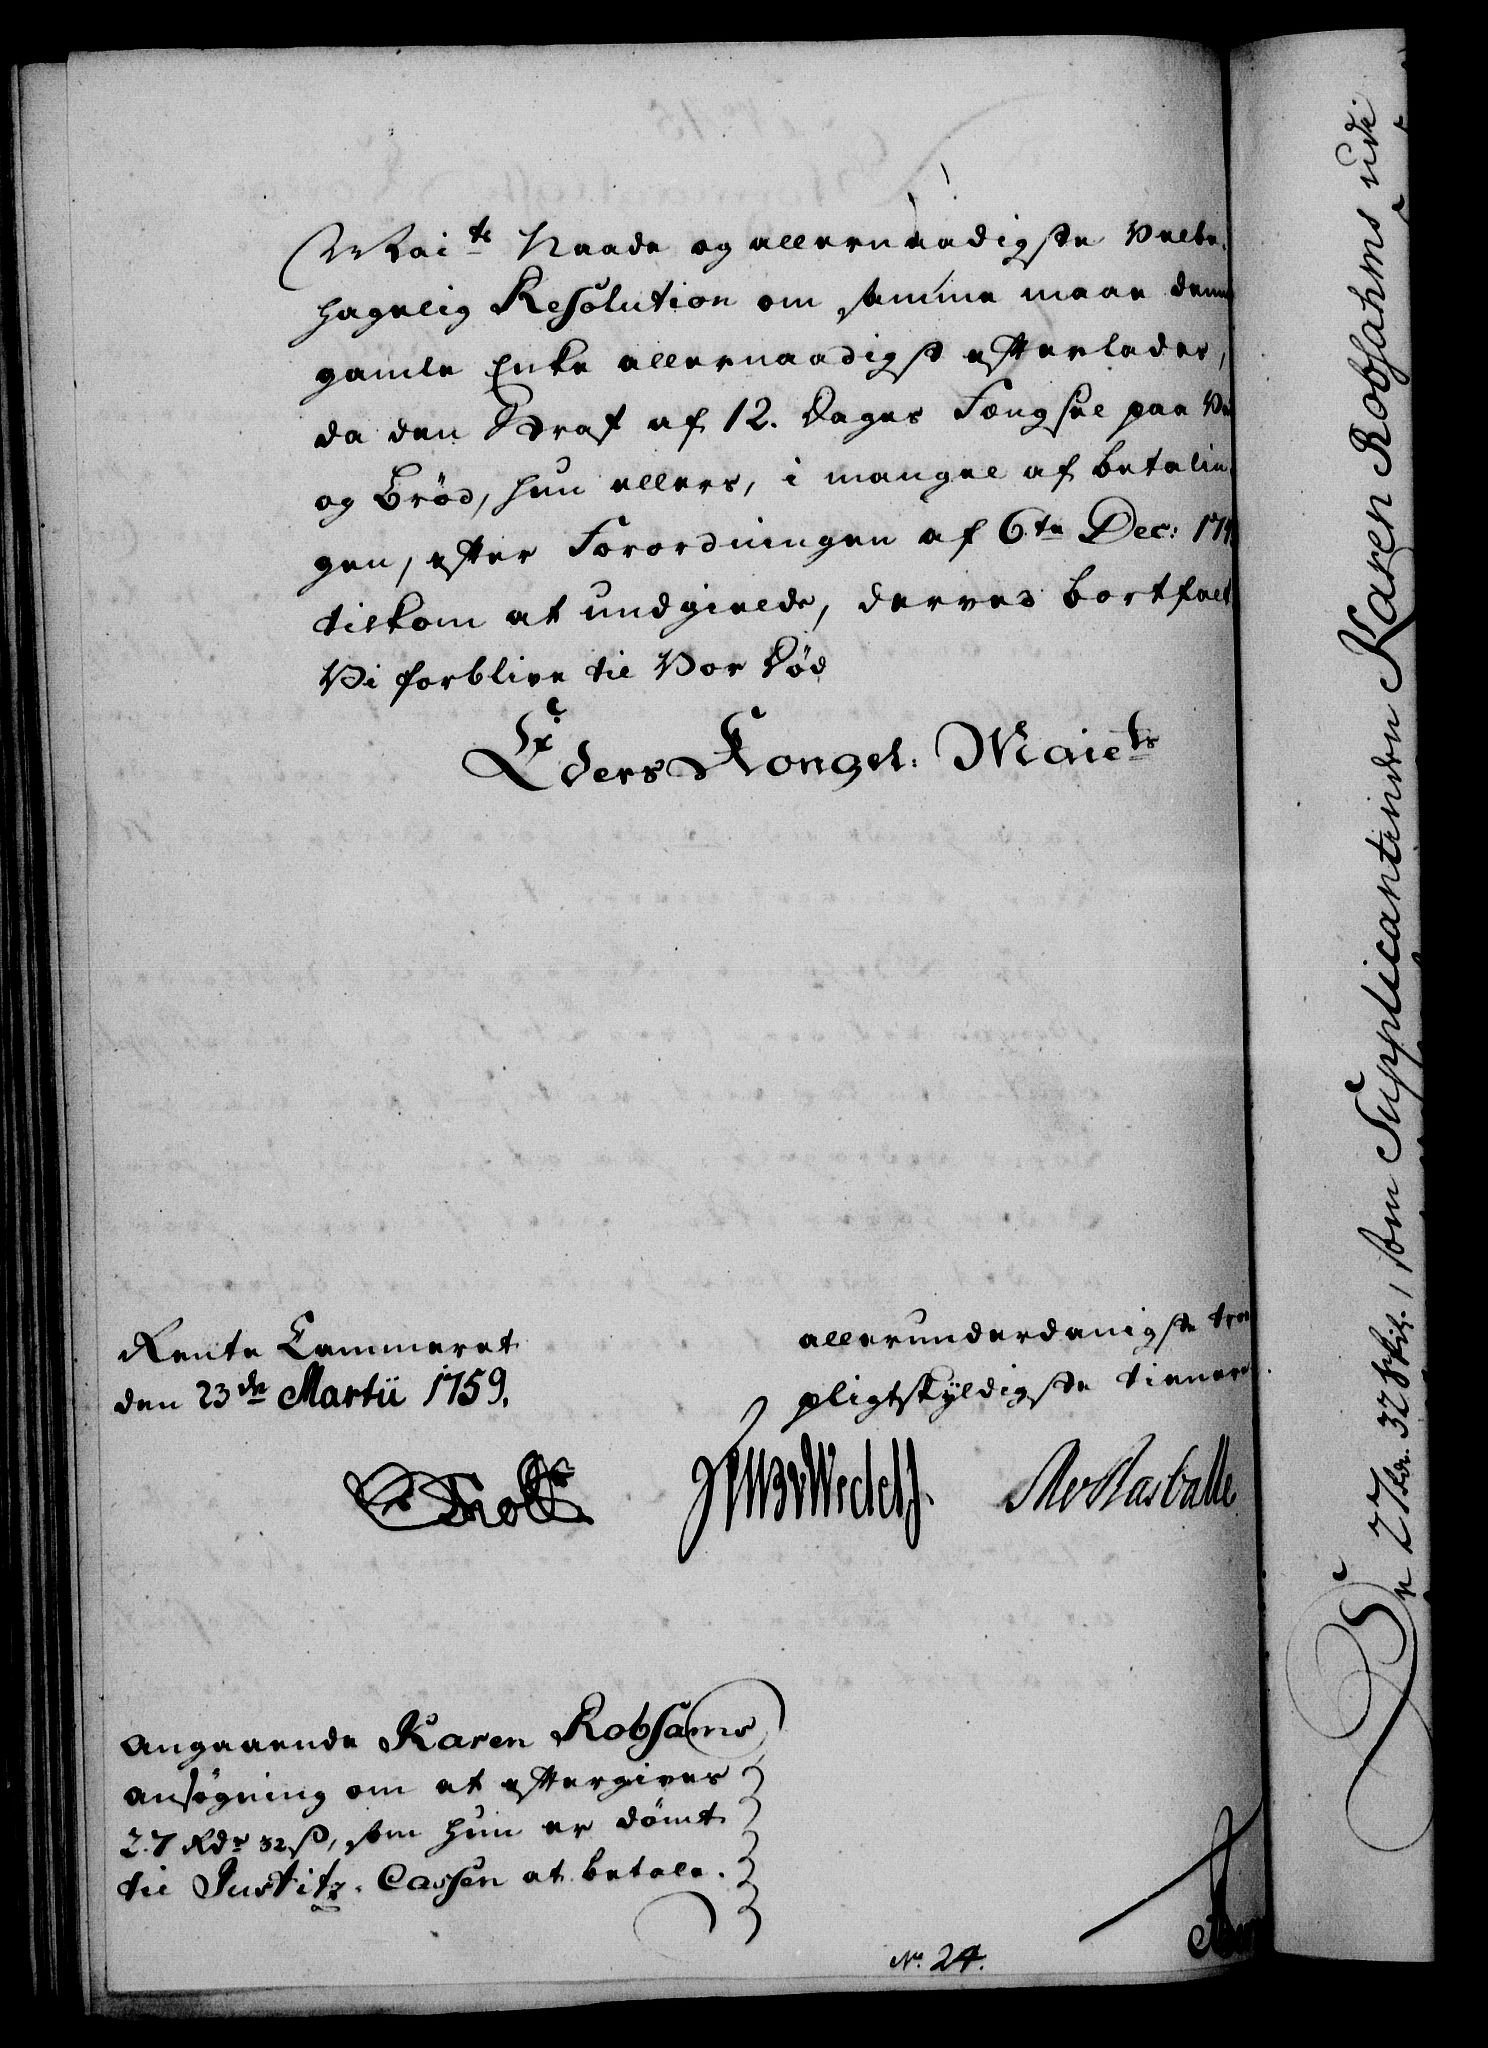 Mai.ts Naade og allernaadigste Velbe-
hagelig Resolution om samme maae denne
gamle Enke allernaadigst efterlades,
da den Straf af 12. Dages Fængsel paa
og Brød, hun ellers, i mangel af betalin-
gen, efter Forordningen af 6te Dec:
tilkom at undgielde, derved bortfal
Vi forblive til Vor Død
Eders Kongel: Maiets
Rente Cammeret
den 23de Martii 1759.
allerunderdanigste
pligtskyldigste tienere
Angaaende Karen Robsams
ansøgning om at eftergives
27 Rdr 32 ß, som hun er dømt
til Justitz-Cassen at betale.
No. 24.
27 Rdr. 32 Sk., som Supplicantinden Karen Robsahms udi